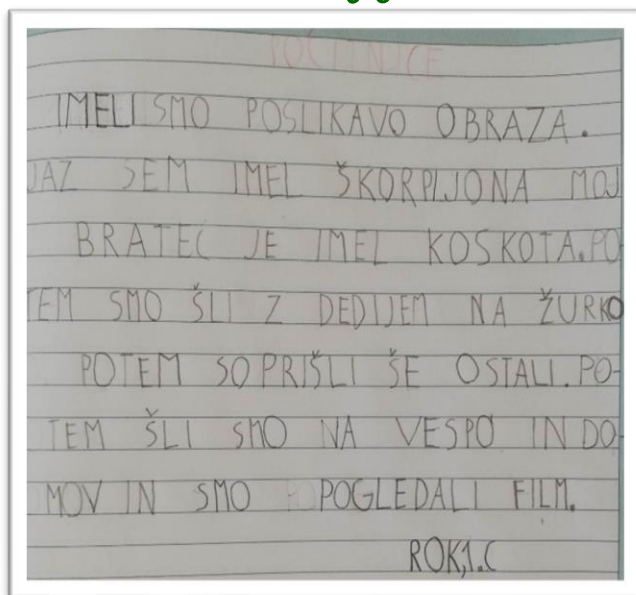 POČITNICE
IMELI SMO POSLIKAVO OBRAZA.
JAZ SEM IMEL ŠKORPIJONA MOJ
BRATEC JE IMEL KOSKOTA. PO
TEM SMO ŠLI Z DEDIJEM NA ŽURKO
POTEM SO PRIŠLI ŠE OSTALI. PO-
TEM ŠLI SMO NA VESPO IN DO-
MOV IN SMO POGLEDALI FILM.
ROK,1.C